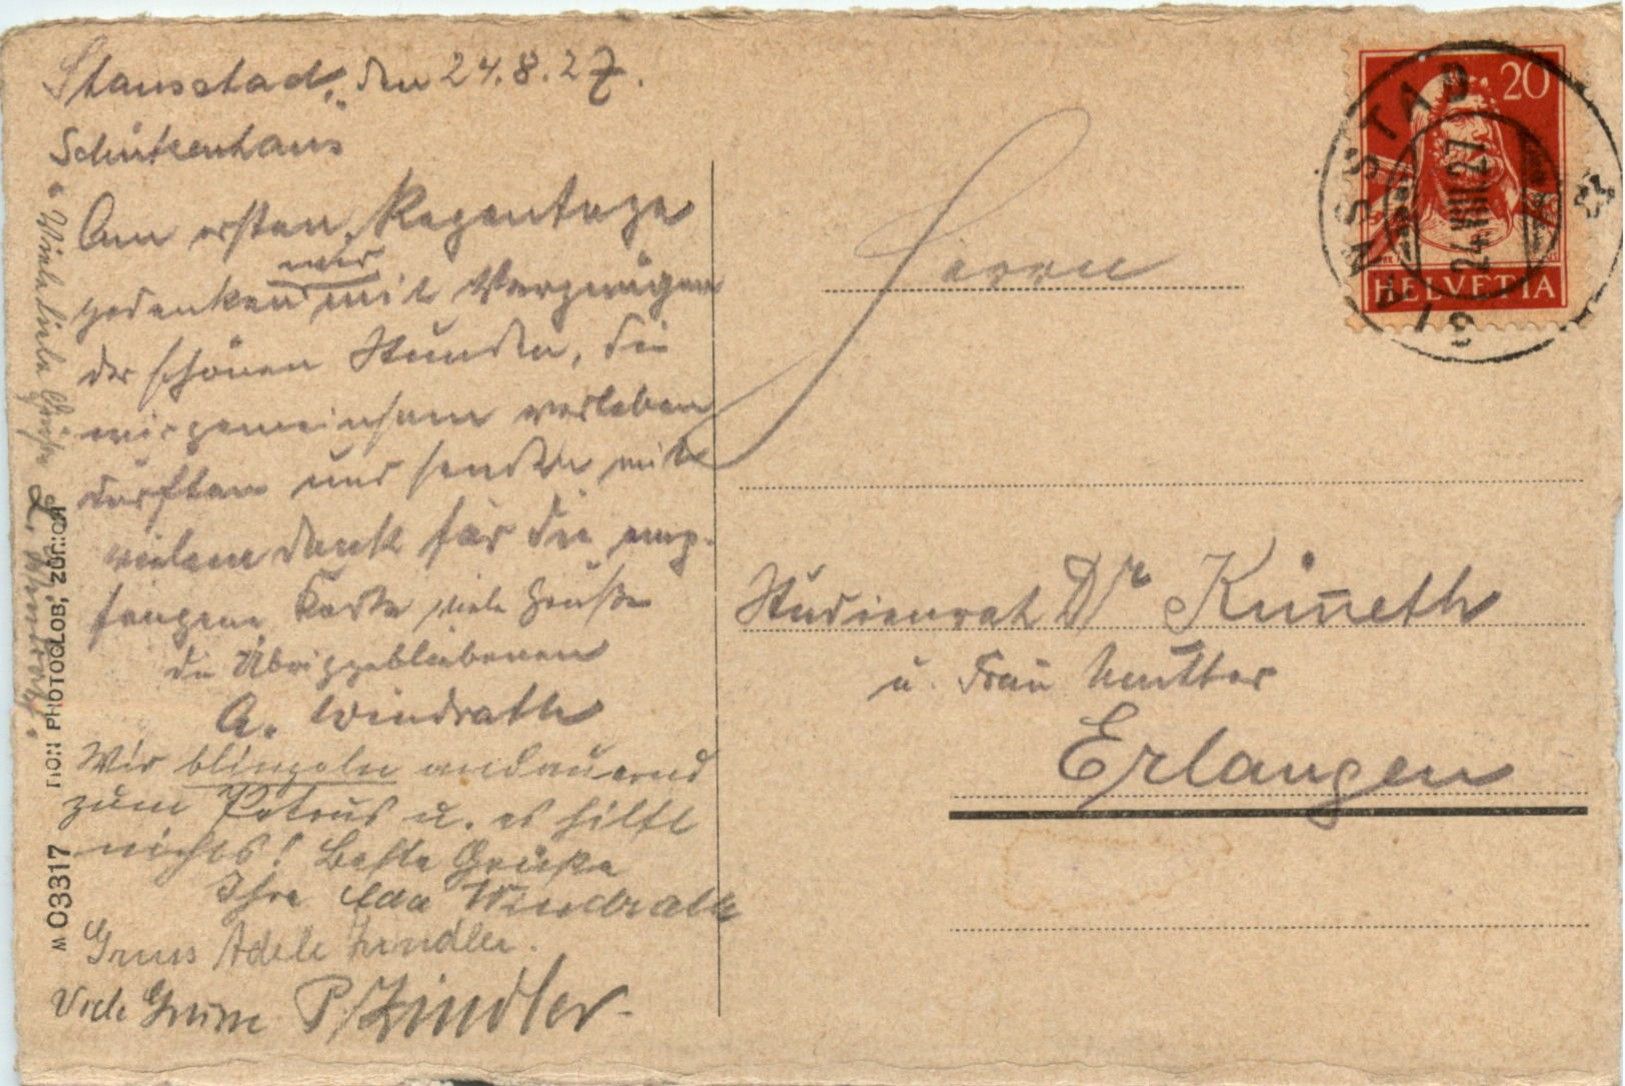 Stansstad, den 24.8.27.
Schützenhaus
Am ersten Regentage
gedenken wir mit Vergnügen
der schönen Stunden, die
wir gemeinsam verleben
durften und senden mit
vielem Dank für die emp-
fangene Karte viele Grüße
die Übriggebliebenen
A. Windrath
Wir blinzeln andauernd
zum Petrus u. es hilft
nichts! Beste Grüße
Ihre Windrath
Gruss Adele Zindler.
Viele Grüsse P. Zindler.
Viele liebe Grüße L. Windrath.
W 03317
PHOTOGLOB, ZÜRICH
20
HELVETIA
STANSSTAD
24.VIII.27
Herrn
Studienrat Dr. Künneth
u. Frau Mutter
Erlangen